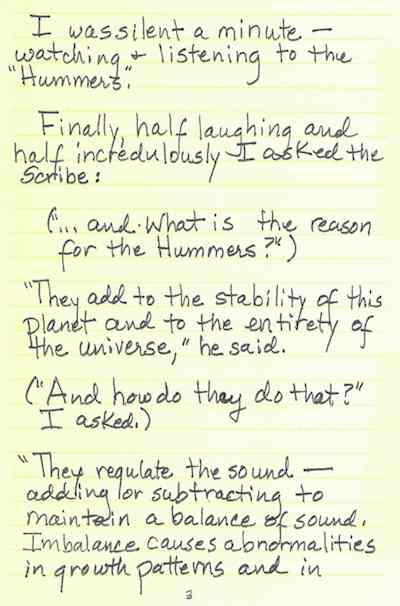 I was silent a minute —
watching & listening to the
"Hummers".
Finally, half laughing and
half incredulously I asked the
Scribe:
("... and what is the reason
for the Hummers?")
"They add to the stability of this
planet and to the entirety of
the universe," he said.
("And how do they do that?"
I asked.)
"They regulate the sound —
adding or subtracting to
maintain a balance of sound.
Imbalance causes abnormalities
in growth patterns and in
3